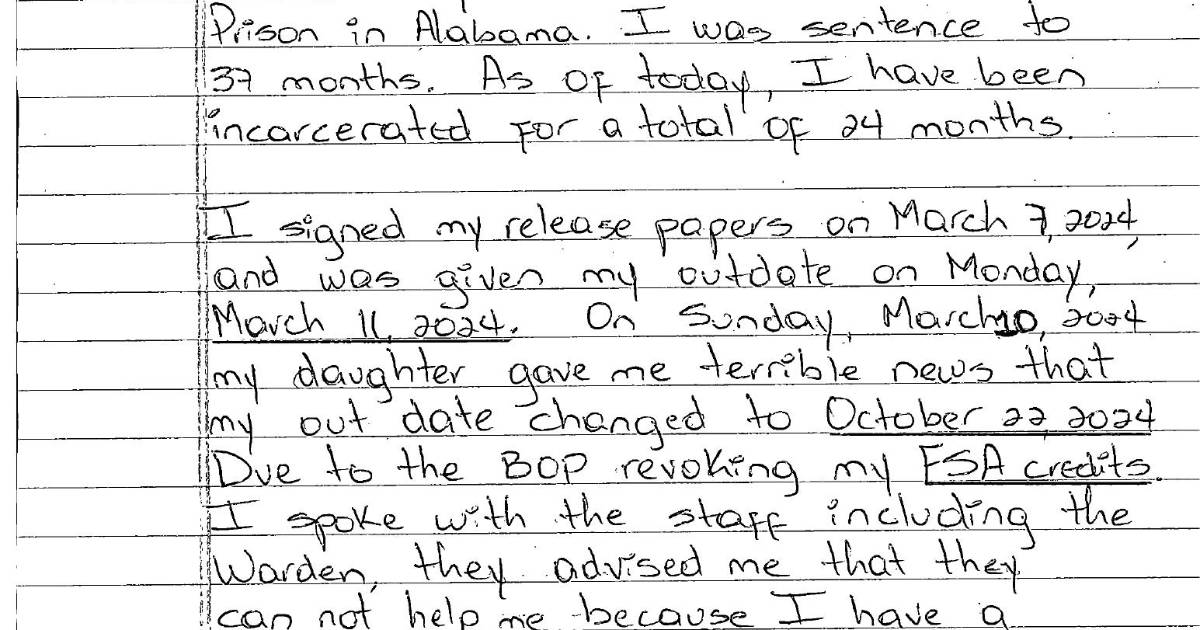 Prison in Alabama. I was sentence to
37 months. As of today, I have been
incarcerated for a total of 24 months.
I signed my release papers on March 7, 2024,
and was given my outdate on Monday,
March 11, 2024. On Sunday, March 10, 2024
my daughter gave me terrible news that
my out date changed to October 22, 2024
Due to the BOP revoking my FSA credits.
I spoke with the staff including the
Warden, they advised me that they
can not help me because I have a